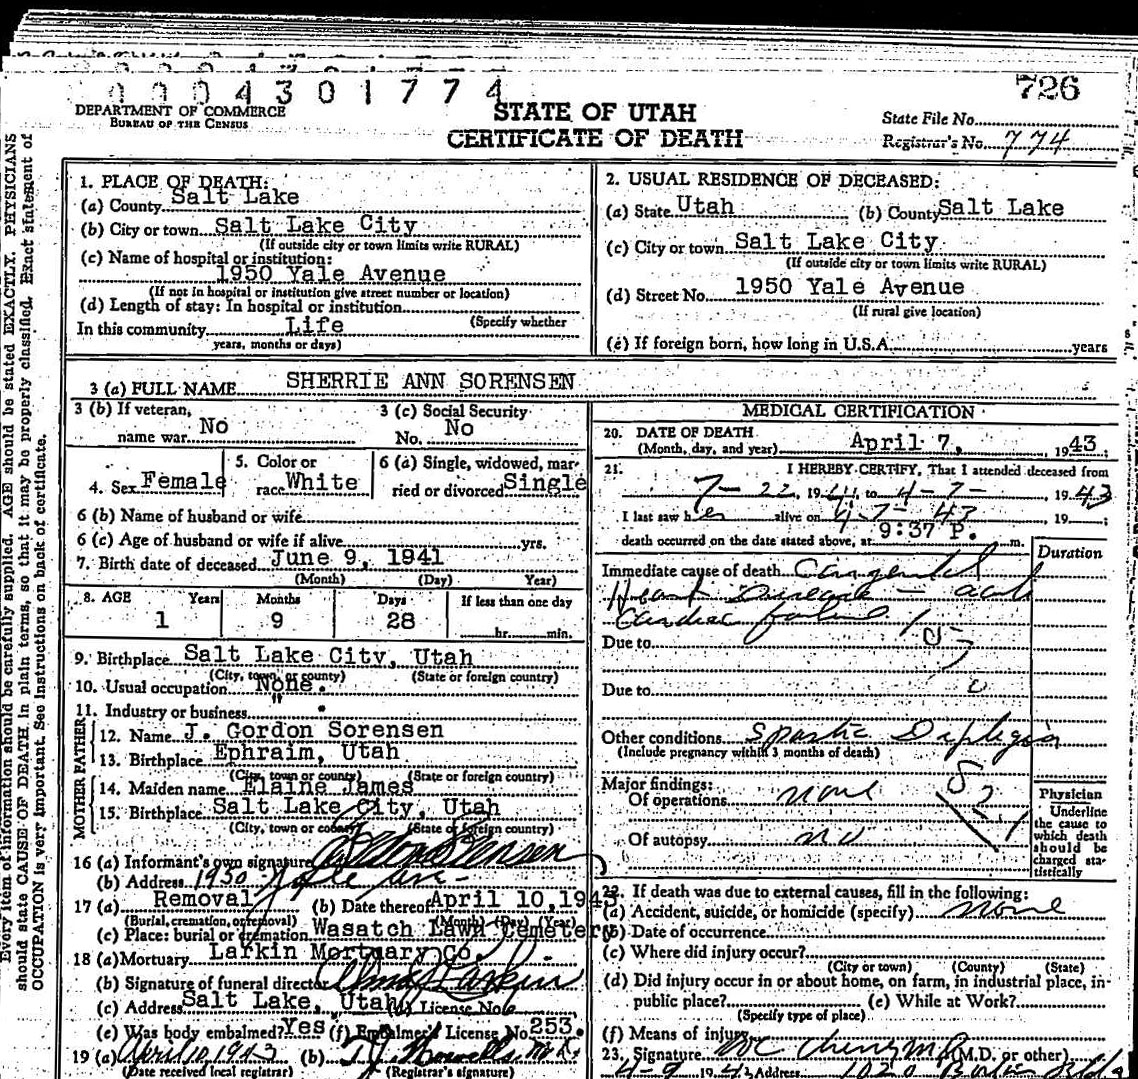 0004301774
726
DEPARTMENT OF COMMERCE
BUREAU OF THE CENSUS
STATE OF UTAH
CERTIFICATE OF DEATH
State File No.
Registrar's No. 774
Every item of information should be carefully supplied. AGE should be stated EXACTLY. PHYSICIANS
should state CAUSE OF DEATH in plain terms, so that it may be properly classified. Exact statement of
OCCUPATION is very important. See instructions on back of certificate.
1. PLACE OF DEATH:
(a) County Salt Lake
(b) City or town Salt Lake City
(If outside city or town limits write RURAL)
(c) Name of hospital or institution:
1950 Yale Avenue
(If not in hospital or institution give street number or location)
(d) Length of stay: In hospital or institution
(Specify whether
In this community Life
years, months or days)
2. USUAL RESIDENCE OF DECEASED:
(a) State Utah (b) County Salt Lake
(c) City or town Salt Lake City
(If outside city or town limits write RURAL)
(d) Street No. 1950 Yale Avenue
(If rural give location)
(e) If foreign born, how long in U.S.A. years
3 (a) FULL NAME SHERRIE ANN SORENSEN
3 (b) If veteran, name war No
3 (c) Social Security No. No
4. Sex Female
5. Color or race White
6 (a) Single, widowed, married or divorced Single
6 (b) Name of husband or wife
6 (c) Age of husband or wife if alive yrs.
7. Birth date of deceased June 9, 1941
(Month) (Day) Year)
8. AGE Years Months Days If less than one day
1 9 28 hr. min.
9. Birthplace Salt Lake City, Utah
(City, town, or county) (State or foreign country)
10. Usual occupation None.
11. Industry or business "
MOTHER FATHER
12. Name J. Gordon Sorensen
13. Birthplace Ephraim, Utah
(City, town or county) (State or foreign country)
14. Maiden name Elaine James
15. Birthplace Salt Lake City, Utah
(City, town or county) (State or foreign country)
16 (a) Informant's own signature Sorensen
(b) Address 1950 Yale Ave
17 (a) Removal (b) Date thereof April 10, 1943
(Burial, cremation, or removal) (Month) (Day) (Year)
(c) Place: burial or cremation Wasatch Lawn Cemetery
18 (a) Mortuary Larkin Mortuary Co.
(b) Signature of funeral director Larkin
(c) Address Salt Lake, Utah (d) License No. 6
(e) Was body embalmed? Yes (f) Embalmer's License No. 253.
19 (a) April 10 1943 (b)
(Date received local registrar) (Registrar's signature)
MEDICAL CERTIFICATION
20. DATE OF DEATH
(Month, day, and year) April 7, 1943
21. I HEREBY CERTIFY, That I attended deceased from
7-22, 1941, to 4-7-, 1943
I last saw her alive on 4-7-43, 19 ;
death occurred on the date stated above, at 9:37 P. m.
Duration
Immediate cause of death Congenital
Heart Disease - acute
Cardiac failure
Due to
Due to
Other conditions Spastic Diplegia
(Include pregnancy within 3 months of death)
Major findings:
Of operations none
Of autopsy no
Physician
Underline
the cause to
which death
should be
charged sta-
tistically
22. If death was due to external causes, fill in the following:
(a) Accident, suicide, or homicide (specify) none
(b) Date of occurrence
(c) Where did injury occur?
(City or town) (County) (State)
(d) Did injury occur in or about home, on farm, in industrial place, in
public place? (e) While at Work?
(Specify type of place)
(f) Means of injury
23. Signature (M.D. or other)
4-9 1943 Address 1020 Bldg